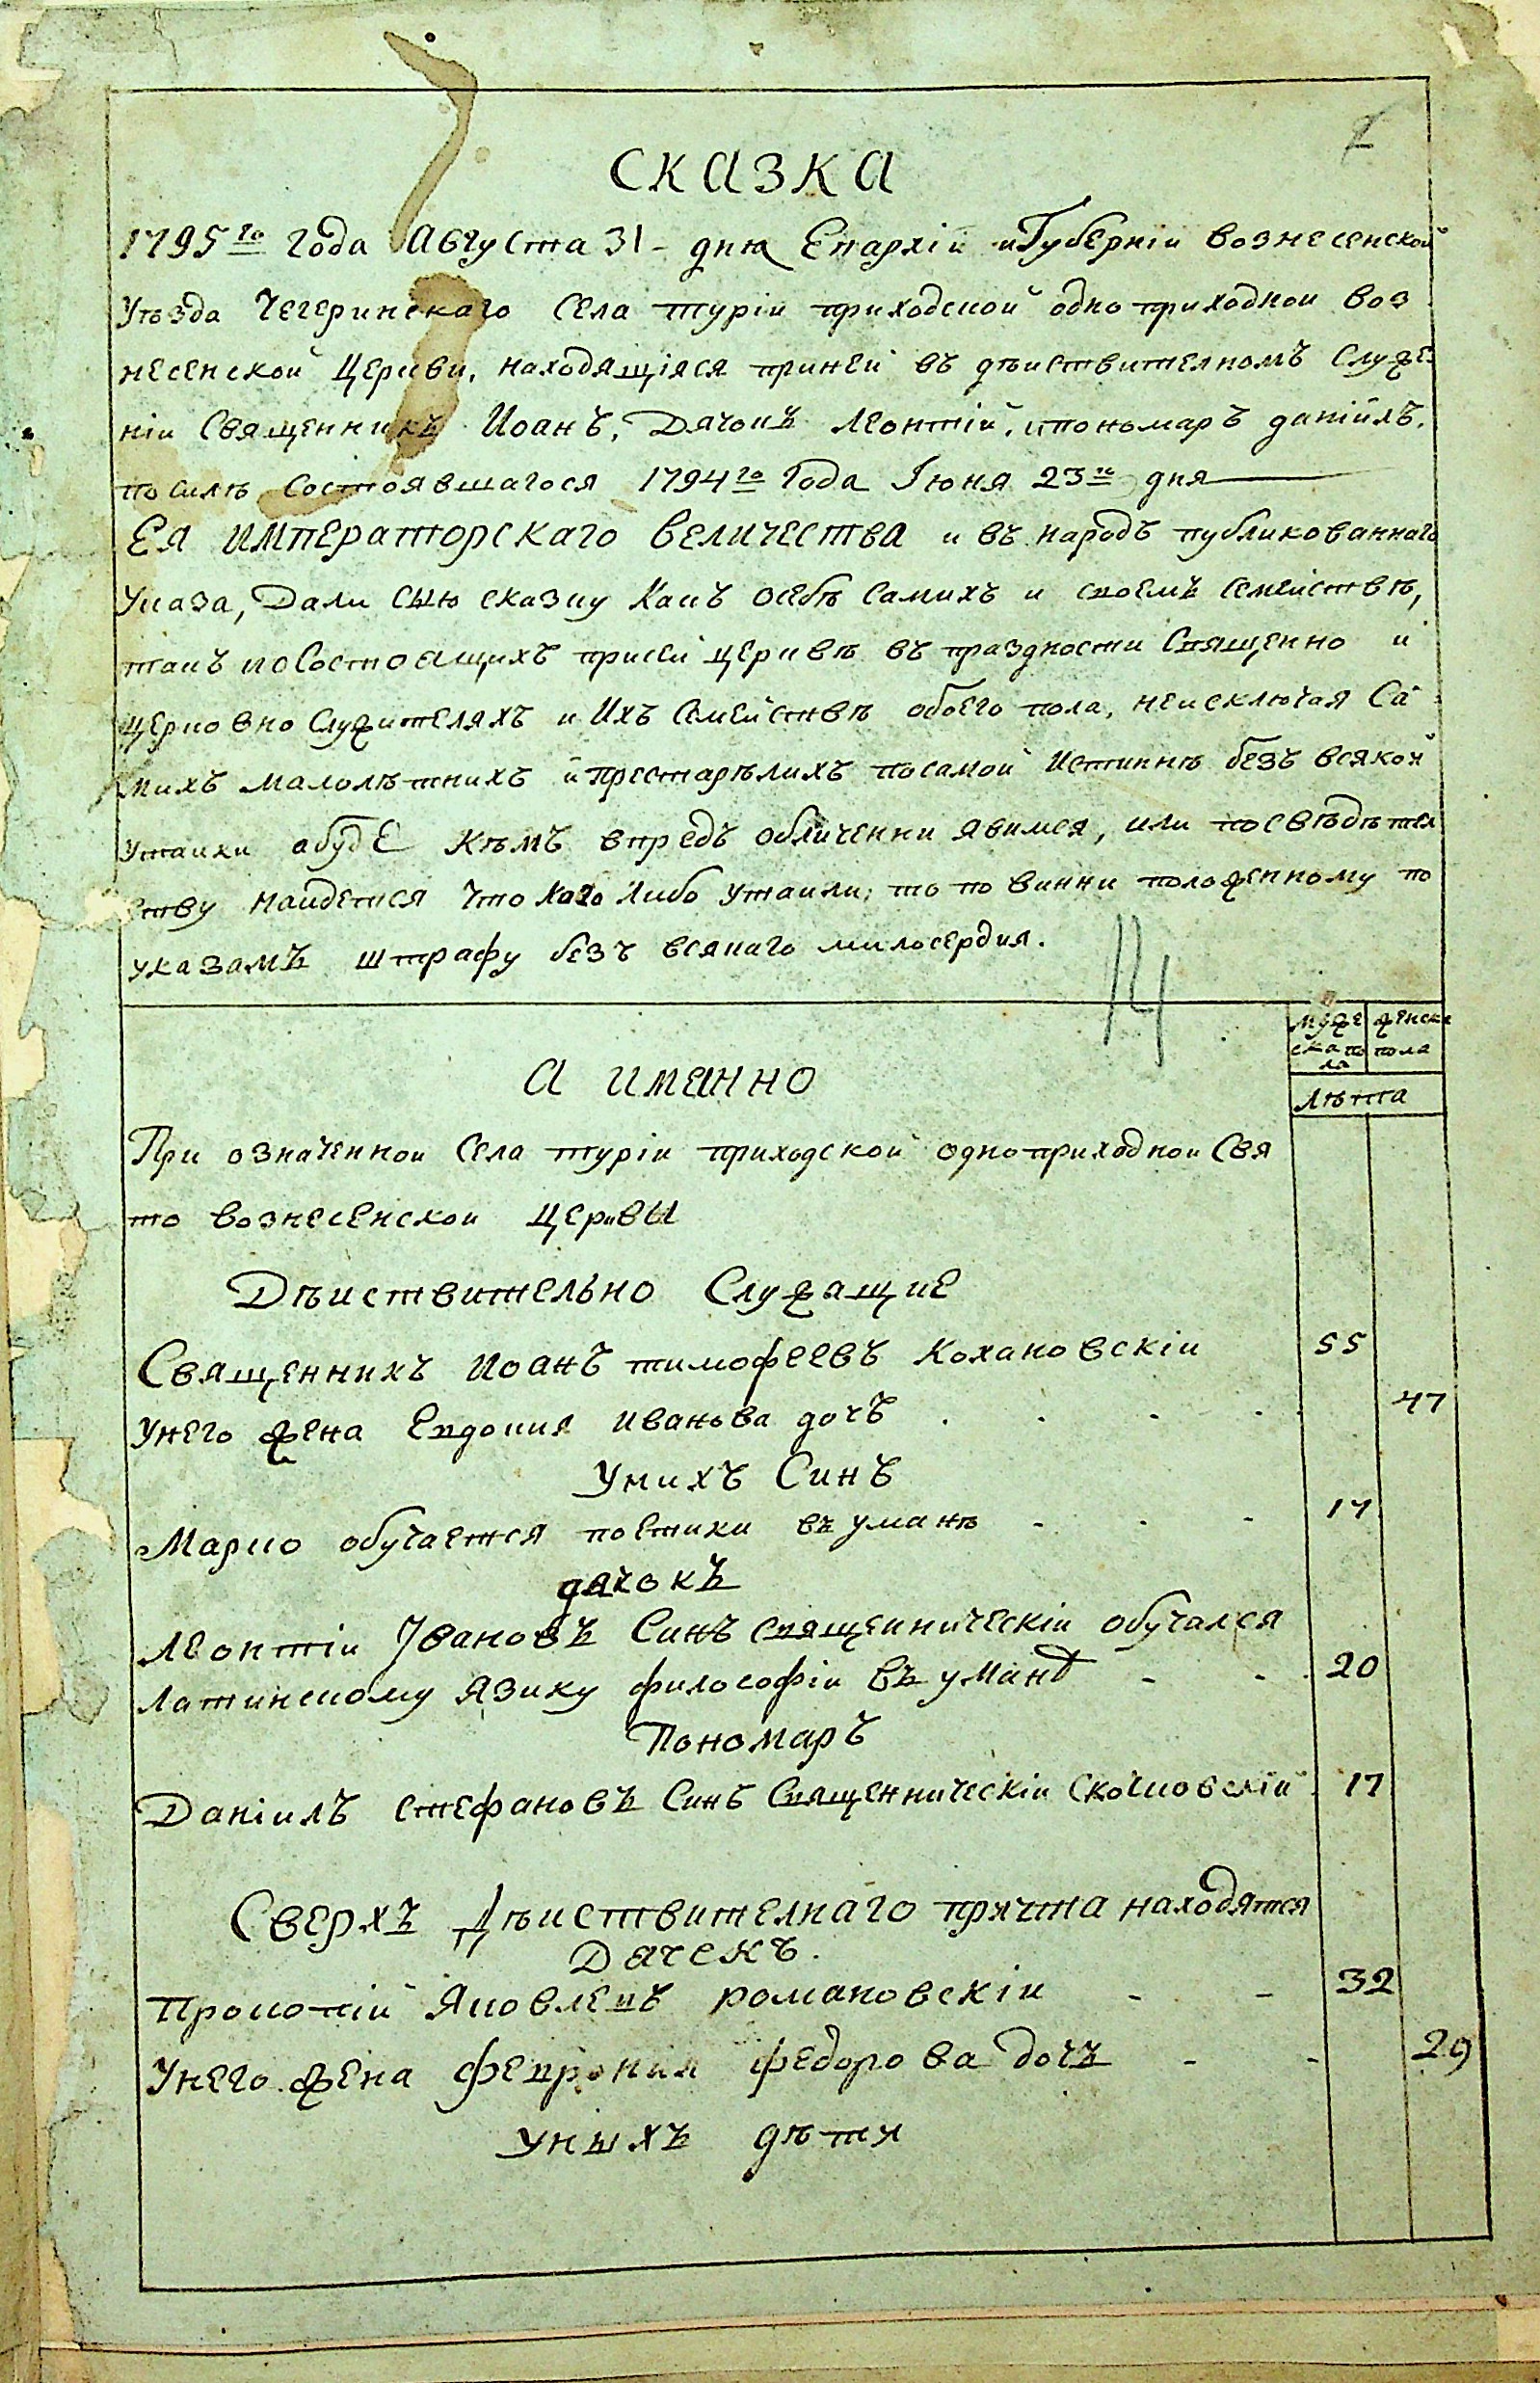 СКАЗКА
1795го Года Августа 31 - дня Епархіи и Губерніи Вознесенской
Уезда Чегеринскаго Села Туріи приходской одноприходной Воз
несенской Церкви, находящіяся при ней въ дѣйствителномъ служе
ніи Священникъ Иоанъ, Дячокъ Леонтій, и пономаръ даніилъ.
по силѣ состоявшагося 1794го Года Іюня 23го дня
Ея Императорскаго Величества и въ народъ публикованнаго
Указа, Дали сыю сказку какъ о себѣ самихъ и своемъ семействѣ,
такъ и о состоящихъ при сей церквѣ въ праздности Священно и
церковно служителяхъ и ихъ семействѣ обоего пола, неисключая са
михъ малолѣтнихъ и престарѣлихъ по самой истиннѣ безъ всякой
утайки а буде кѣмъ впредь обличенни явимся, или по свѣдѣтел
ству найдется что кого либо утаили; то повинни положенному по
указамъ штрафу безъ всякаго милосердия.
муже женска
ска по пола
ла
Лѣта
А ИМЕННО
При означенной Села Туріи приходской одноприходной Свя
то Вознесенской Церквы
Дѣиствительно Служащие
Священникъ Иоанъ Тимофеевъ Кохановскіи 55
У него жена Евдокия Иванова дочъ 47
У нихъ Синъ
Марко обучается поетики въ уманѣ 17
дячокъ
Леонтіи Івановъ Синъ священническіи обучался
Латинскому язику философіи въ уманѣ 20
Пономаръ
Даніилъ Стефановъ Синъ Священническіи 17
Сверхъ Дѣиствителнаго причта находятся
Дячекъ.
Прокопій Яковлевъ Романовскіи 32
У него жена Февронія Федорова дочъ 29
У ныхъ дѣти